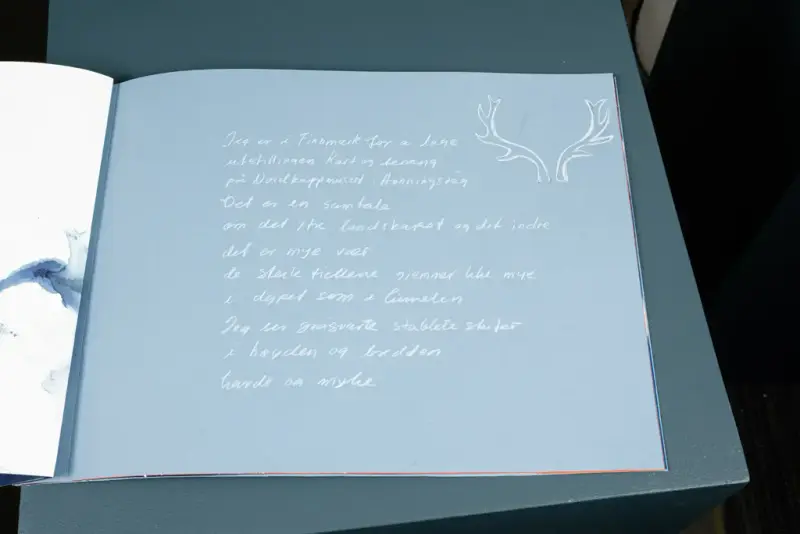 Jeg er i Finnmark for å lage
utstillingen Kart og terreng
på Nordkappmuseet i Honningsvåg
Det er en samtale
om det ytre landskapet og det indre
det er mye vær
de steile fjellene rommer like mye
i dypet som i himmelen
Jeg ser gråsvarte stablete skifer
i høyden og bredden
harde og myke